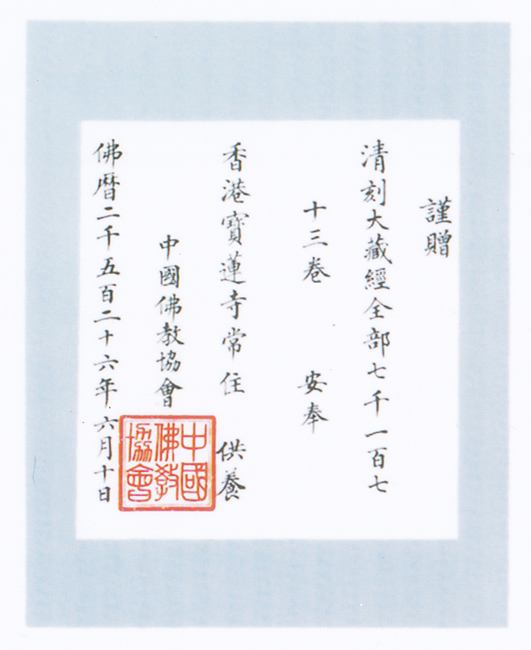 謹贈
清刻大藏經全部七千一百七
十三卷 安奉
香港寶蓮寺常住 供養
中國佛教協會
佛曆二千五百二十六年六月十日
中國
佛教
協會